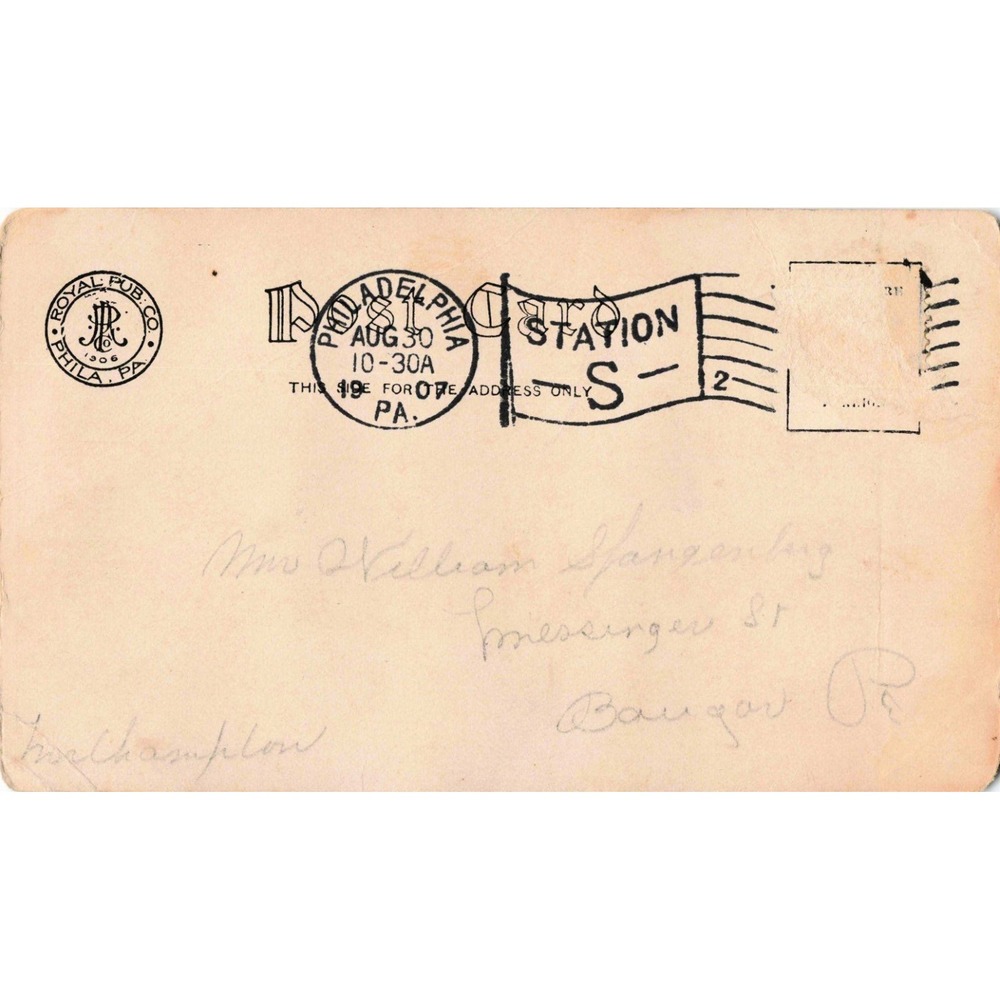 ROYAL PUB. CO.
PHILA. PA.
1906
Post Card
THIS SIDE FOR THE ADDRESS ONLY
PHILADELPHIA
AUG 30
10-30A
19 07
PA.
STATION
S
2
RE
William Spangenburg
messenger St
Bangor Pa
Northampton